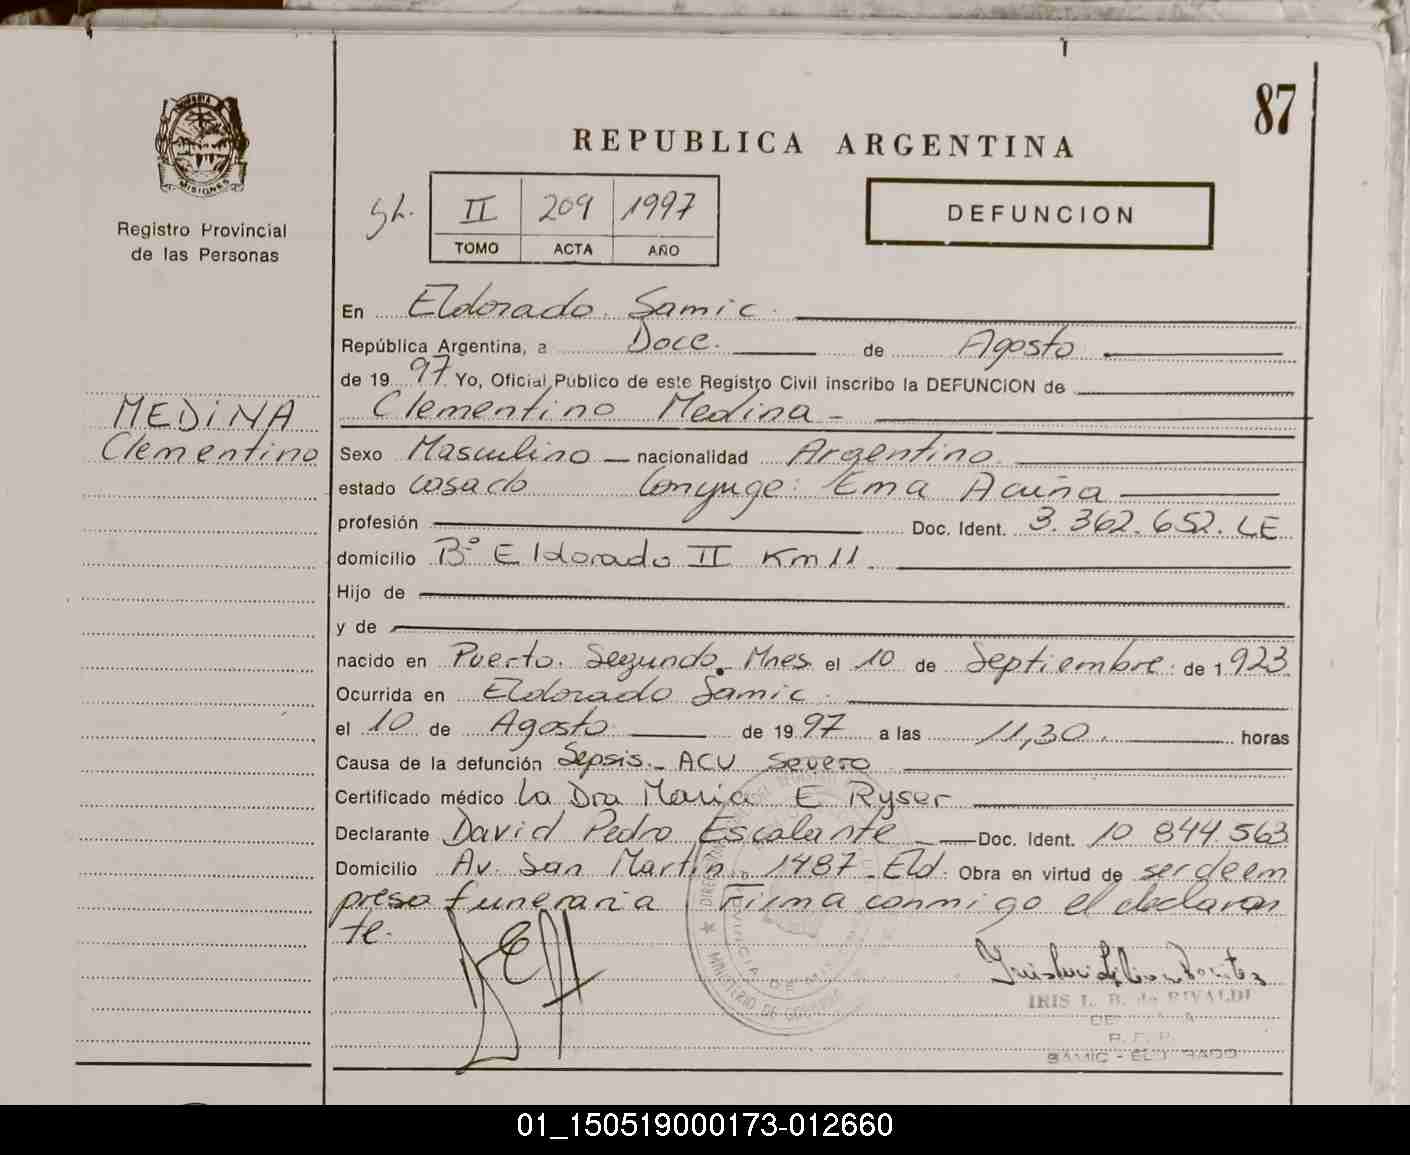 87
REPUBLICA ARGENTINA
MISIONES
Registro Provincial
de las Personas
II 209 1997
TOMO ACTA AÑO
DEFUNCION
MEDINA
Clementino
En Eldorado. Samic.
República Argentina, a Doce. de Agosto
de 19 97. Yo, Oficial Público de este Registro Civil inscribo la DEFUNCION de
Clementino Medina -
Sexo Masculino nacionalidad Argentino
estado casado Conyuge: Ema Acuña
profesión Doc. Ident. 3.362.652. LE
domicilio Bº Eldorado II Km 11.
Hijo de
y de
nacido en Puerto. Segundo. Mnes. el 10 de Septiembre. de 1.923
Ocurrida en Eldorado Samic.
el 10 de Agosto de 19 97 a las 11,30. horas
Causa de la defunción Sepsis. ACV Severo
Certificado médico La Dra Maria E Ryser
Declarante David Pedro Escalante Doc. Ident. 10 844.563
Domicilio Av. San Martin. 1487 - Eld. Obra en virtud de ser de em
presa funeraria Firma conmigo el declaran
te.
MINISTERIO DE GOBIERNO
IRIS L. B. de RIVALDI
SAMIC - ELDORADO
01_150519000173-012660